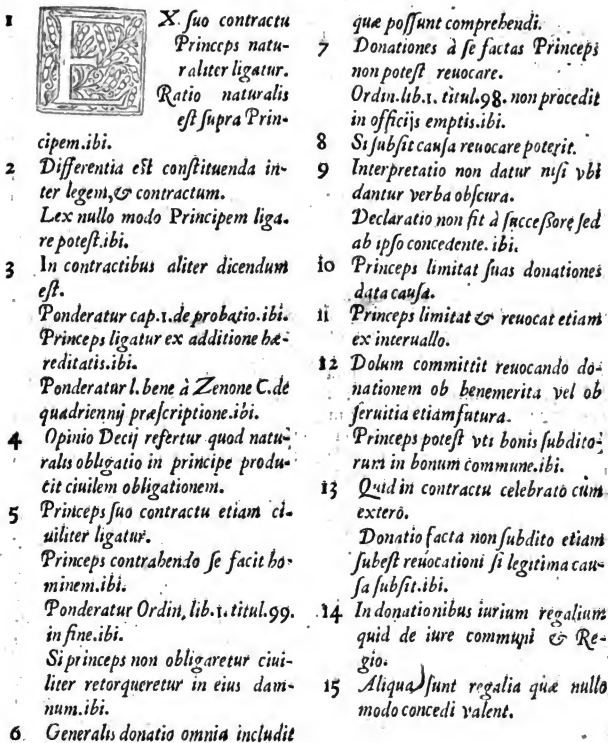 1 EX suo contractu
Princeps natu-
raliter ligatur.
Ratio naturalis
est supra Prin-
cipem.ibi.
2 Differentia est constituenda in-
ter legem,& contractum.
Lex nullo modo Principem liga-
re potest.ibi.
3 In contractibus aliter dicendum
est.
Ponderatur cap.1.de probatio.ibi.
Princeps ligatur ex additione hæ-
reditatis.ibi.
Ponderatur l.bene à Zenone C.de
quadriennij præscriptione.ibi.
4 Opinio Decij refertur quod natu-
ralis obligatio in principe produ-
cit ciuilem obligationem.
5 Princeps suo contractu etiam ci-
uiliter ligatur.
Princeps contrahendo se facit ho-
minem.ibi.
Ponderatur Ordin, lib.1.titul.99.
in fine.ibi.
Si princeps non obligaretur ciui-
liter retorqueretur in eius dam-
num.ibi.
6 Generalis donatio omnia includit
quæ possunt comprehendi.
7 Donationes à se factas Princeps
non potest reuocare.
Ordin.lib.1. titul.98. non procedit
in officijs emptis.ibi.
8 Si subsit causa reuocare poterit.
9 Interpretatio non datur nisi vbi
dantur verba obscura.
Declaratio non fit à successore sed
ab ipso concedente. ibi.
10 Princeps limitat suas donationes
data causa.
11 Princeps limitat & reuocat etiam
ex interuallo.
12 Dolum committit reuocando do-
nationem ob benemerita vel ob
seruitia etiam futura.
Princeps potest vti bonis subdito-
rum in bonum commune.ibi.
13 Quid in contractu celebrato cum
extero.
Donatio facta non subdito etiam
subest reuocationi si legitima cau-
sa subsit.ibi.
14 In donationibus iurium regalium
quid de iure communi & Re-
gio.
15 Aliqua sunt regalia quæ nullo
modo concedi valent.